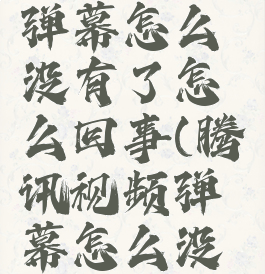 弹幕怎么
没有了怎
么回事(腾
讯视频弹
幕怎么没